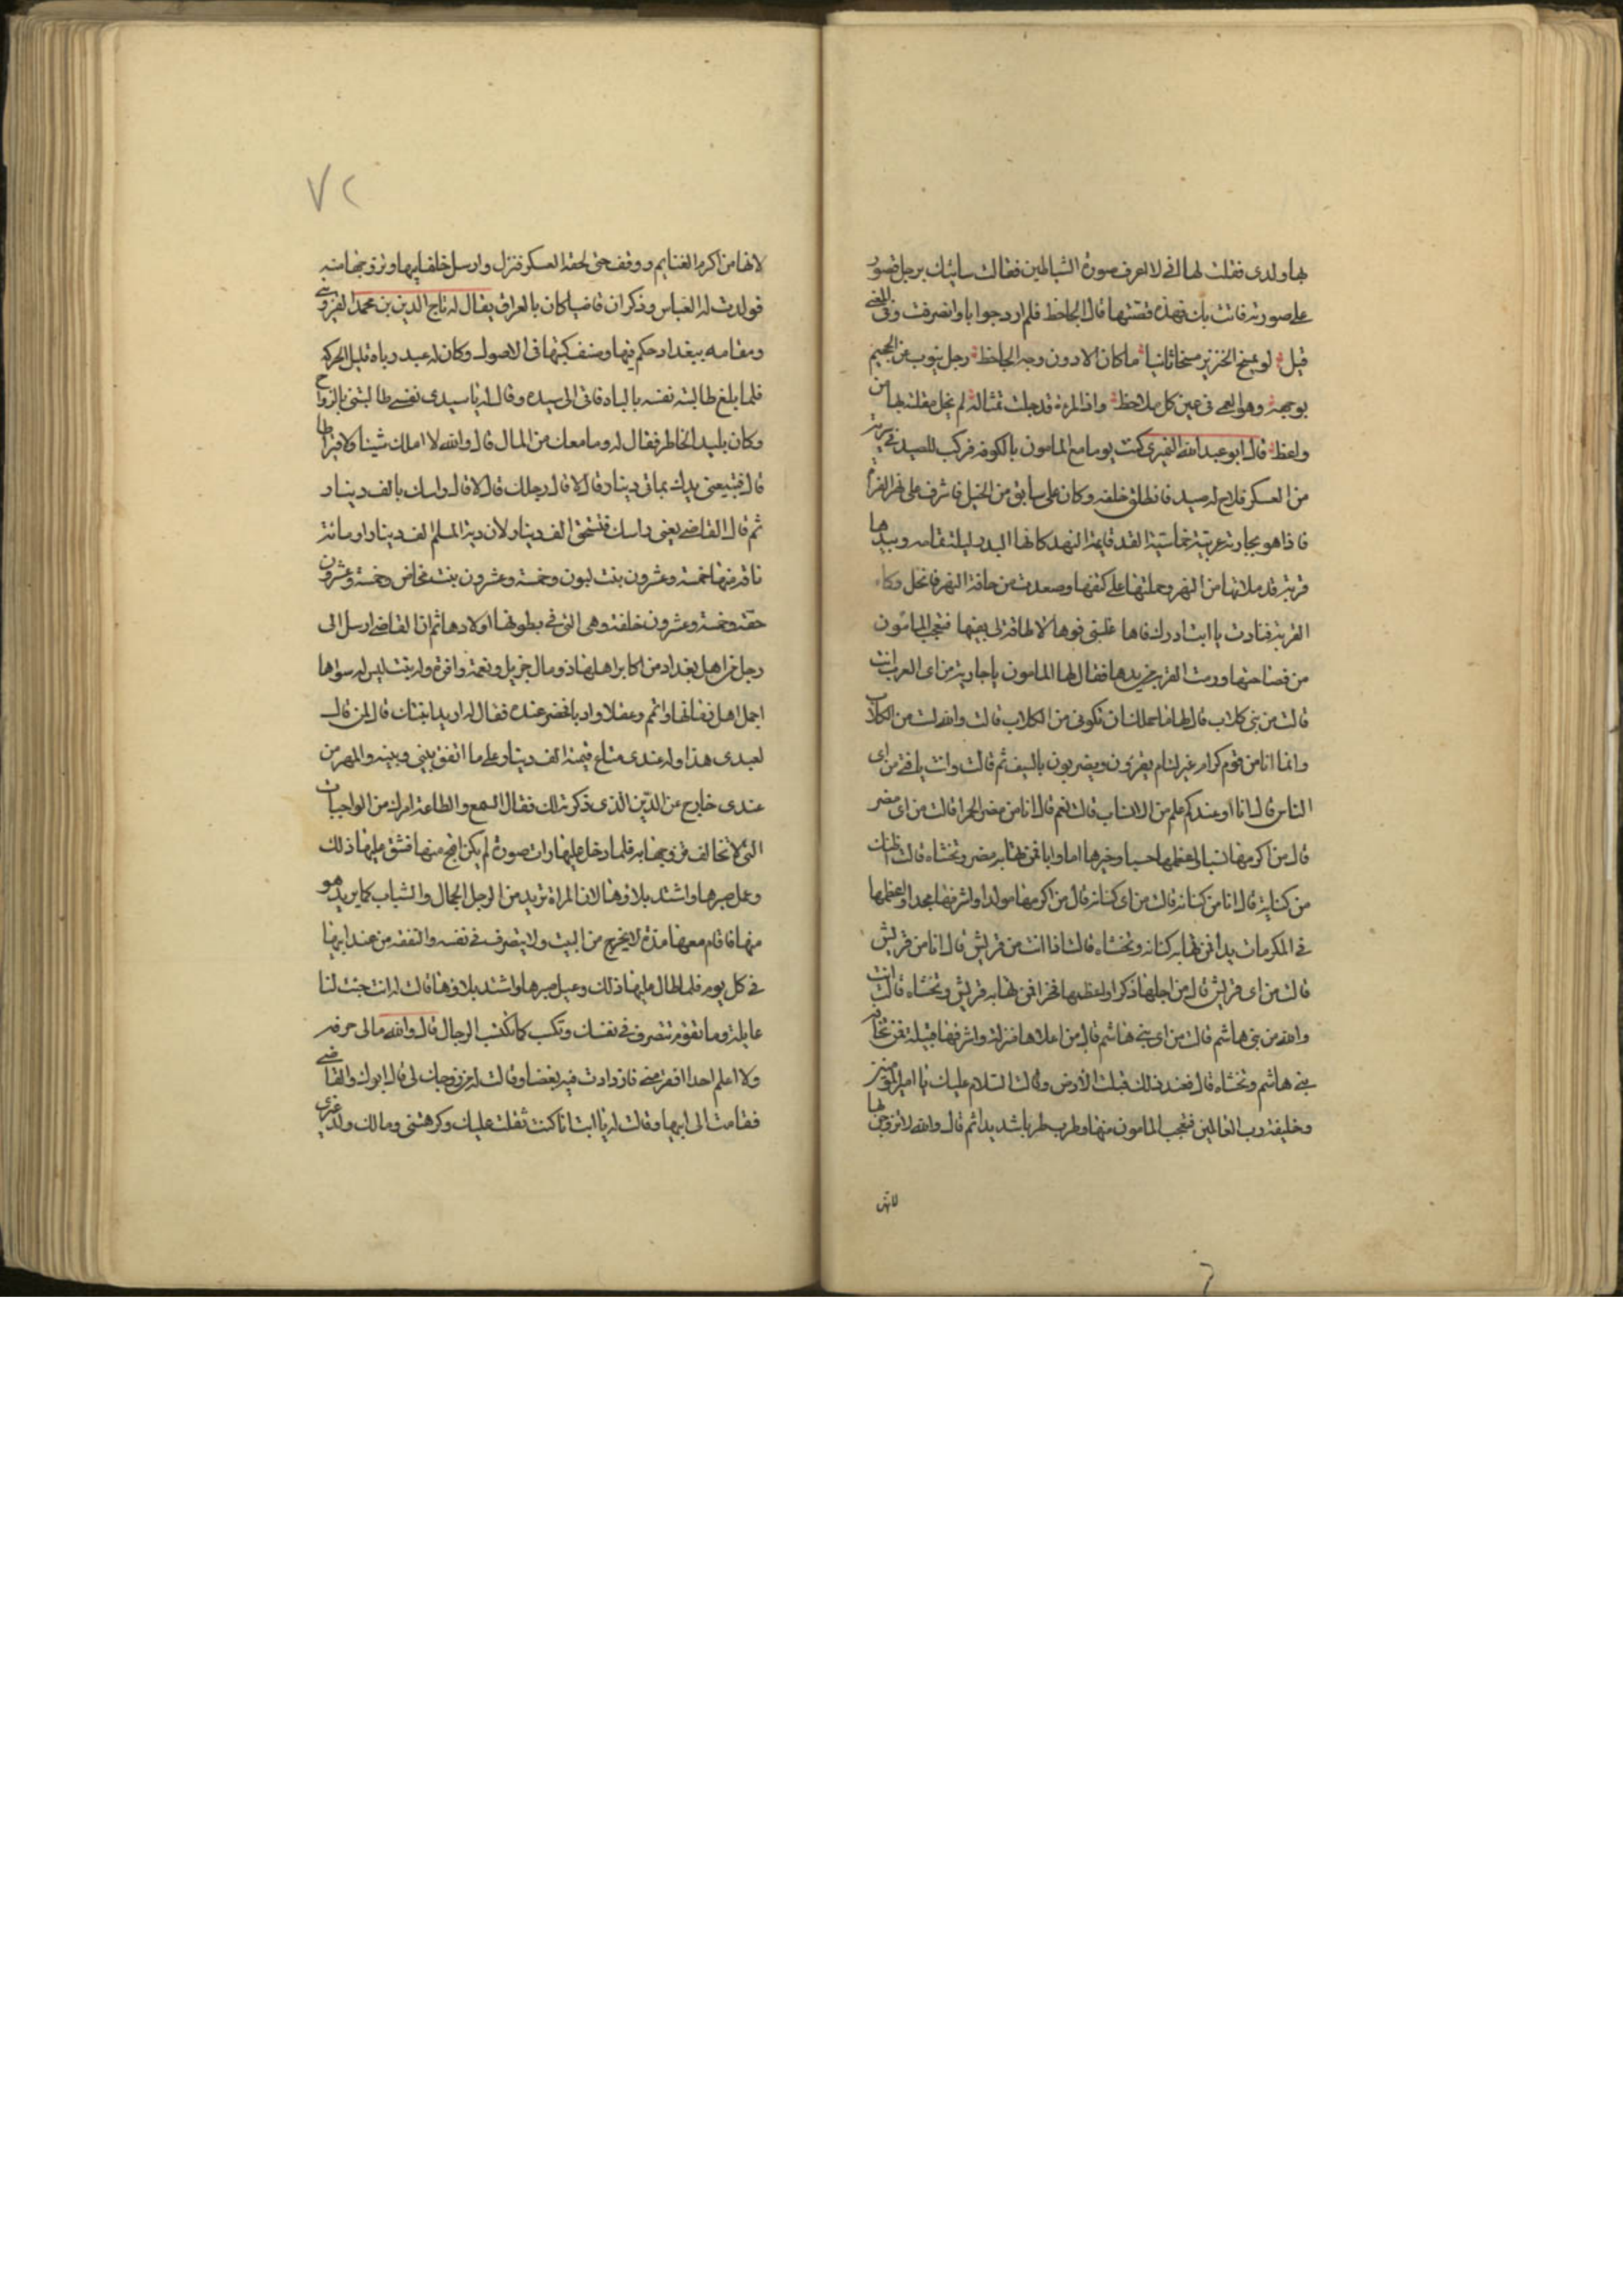 بها ولدى فقلت لها انى لا اعرف صورة الشياطين فقالت ساتيك برجل تصور
على صورته فاتت بك فهذه قصتها قال الجاحظ فلم ارد جوابا وانصرفت وفى المعنى
قيل لو يمسخ الخنزير مسخا ثانيا ما كان الا دون وجه الجاحظ رجل ينوب عن الجحيم
بوجهه وهو العمى فى عين كل ملاحظ واذا المراة قد جلت تمثاله لم تخل مقلته بها من
واعظ قال ابو عبد الله النميرى كنت يوما مع المامون بالكوفة فركب للصيد فى سرية
من العسكر فلاح له صيد فانطلق خلفه وكان على سابق من الخيل فاشرف على نهر الفراة
فاذا هو بجارية عربية خماسية القد قاعدة النهد كانها البدر ليلة تمامه وبيدها
قربة قد ملاتها من النهر وحملتها على كتفها وصعدت من حافة النهر فانحل وكاء
القربة فنادت يا ابت ادرك فاها غلبنى فوها لا طاقة لى بفيها فتعجب المامون
من فصاحتها ورمت القربة من يدها فقال لها المامون يا جارية من اى العرب انت
قالت من بنى كلاب قال لها ما حملك ان تكونى من الكلاب قالت والله لست من الكلاب
وانما انا من قوم كرام غير لئام يقرون ويضربون بالسيف ثم قالت وانت يا فتى من اى
الناس قال انا او عندكم علم من الانساب قالت نعم قال انا من مضر الحمرا قالت من اى مضر
قال من اكرمها نسبا واعظمها حسبا وخيرها اما وابا ممن تهابه مضر وتخشاه قالت اظنك
من كنانة قال انا من كنانة قالت من اى كنانة قال من اكرمها مولدا واشرفها مجدا واعظمها
فى المكرمات يدا ممن تهابه كنانة وتخشاه قالت اذا انت من قريش قال انا من قريش
قالت من اى قريش قال من اجلها ذكرا واعظمها فخرا ممن تهابه قريش وتخشاه قالت انت
والله من بنى هاشم قالت من اى بنى هاشم قال من اعلاها منزلة واشرفها قبيلة ممن تخافه
بنى هاشم وتخشاه قال فعند ذلك قبلت الارض وقالت السلام عليك يا امير المومنين
وخليفة رب العالمين فتعجب المامون منها وطرب طربا شديدا ثم قال والله لاتزوجن بها
لانها
٧٢
لانها من اكرم الغنايم ووقف حتى لحقه العسكر فنزل وارسل خلف ابيها وتزوجها منه
فولدت له العباس وذكر ان قاضيا كان بالعراق يقال له تاج الدين بن محمد القزوينى
ومقامه ببغداد حكم فيها وصنف كتبها فى الاصول وكان له عبد رباه قليل الحركة
فلما بلغ طالبته نفسه بالباه فاتى الى سيده وقال له يا سيدى نفسى طالبتنى بالزواج
وكان بليد الخاطر فقال له وما معك من المال قال والله لا املك شيئا ولا قيراطا
قال فتبيعنى يدك بمائى دينار قال لا قال رجلك قال لا قال راسك بالف دينار
ثم قال القاضى بعنى راسك فتستحق الف دينار لان دية المسلم الف دينار او مائة
ناقة منها خمسة وعشرون بنت لبون وخمسة وعشرون بنت مخاض وخمسة وعشرون
حقة وخمسة وعشرون خلفة وهى التى فى بطونها اولادها ثم ان القاضى ارسل الى
رجل من اهل بغداد من اكابر اهلها ذو مال جزيل ونعمة وافرة وله بنت ليس له سواها
اجمل اهل زمانها واتم وعقلا وادبا فحضر عنده فقال له اريد ابنتك قال لمن قال
لعبدى هذا وله عندى مبلغ قيمته الف دينار على ما اتفق بينى وبينه والمهر من
عندى خارج عن الدين الذى ذكرته لك فقال السمع والطاعة امرك من الواجبات
التى لا تخالف فزوجها به فلما دخل عليها رات صورة لم يكن اقبح منها فشق عليها ذلك
وعيل صبرها واشتد بلاؤها لان المراة تريد من الرجل الجمال والشباب كما يريد هو
منها فاقام معها مدة لا يخرج من البيت ولا يتصرف فى نفسه والنفقة من عند ابيها
فى كل يوم فلما طال عليها ذلك وعيل صبرها واشتد بلاؤها قالت له انت جئت لنا
عايلة وما تقوم تتصرف فى نفسك وتكسب كما تكسب الرجال قال والله مالى حرفة
ولا اعلم احدا افقر منى فازدادت فيه بغضا وقالت له من زوجك لى قال ابوك والقاضى
فقامت الى ابيها وقالت له يا ابتا انا كنت ثقلت عليك وكرهتنى ومالك ولد غيرى